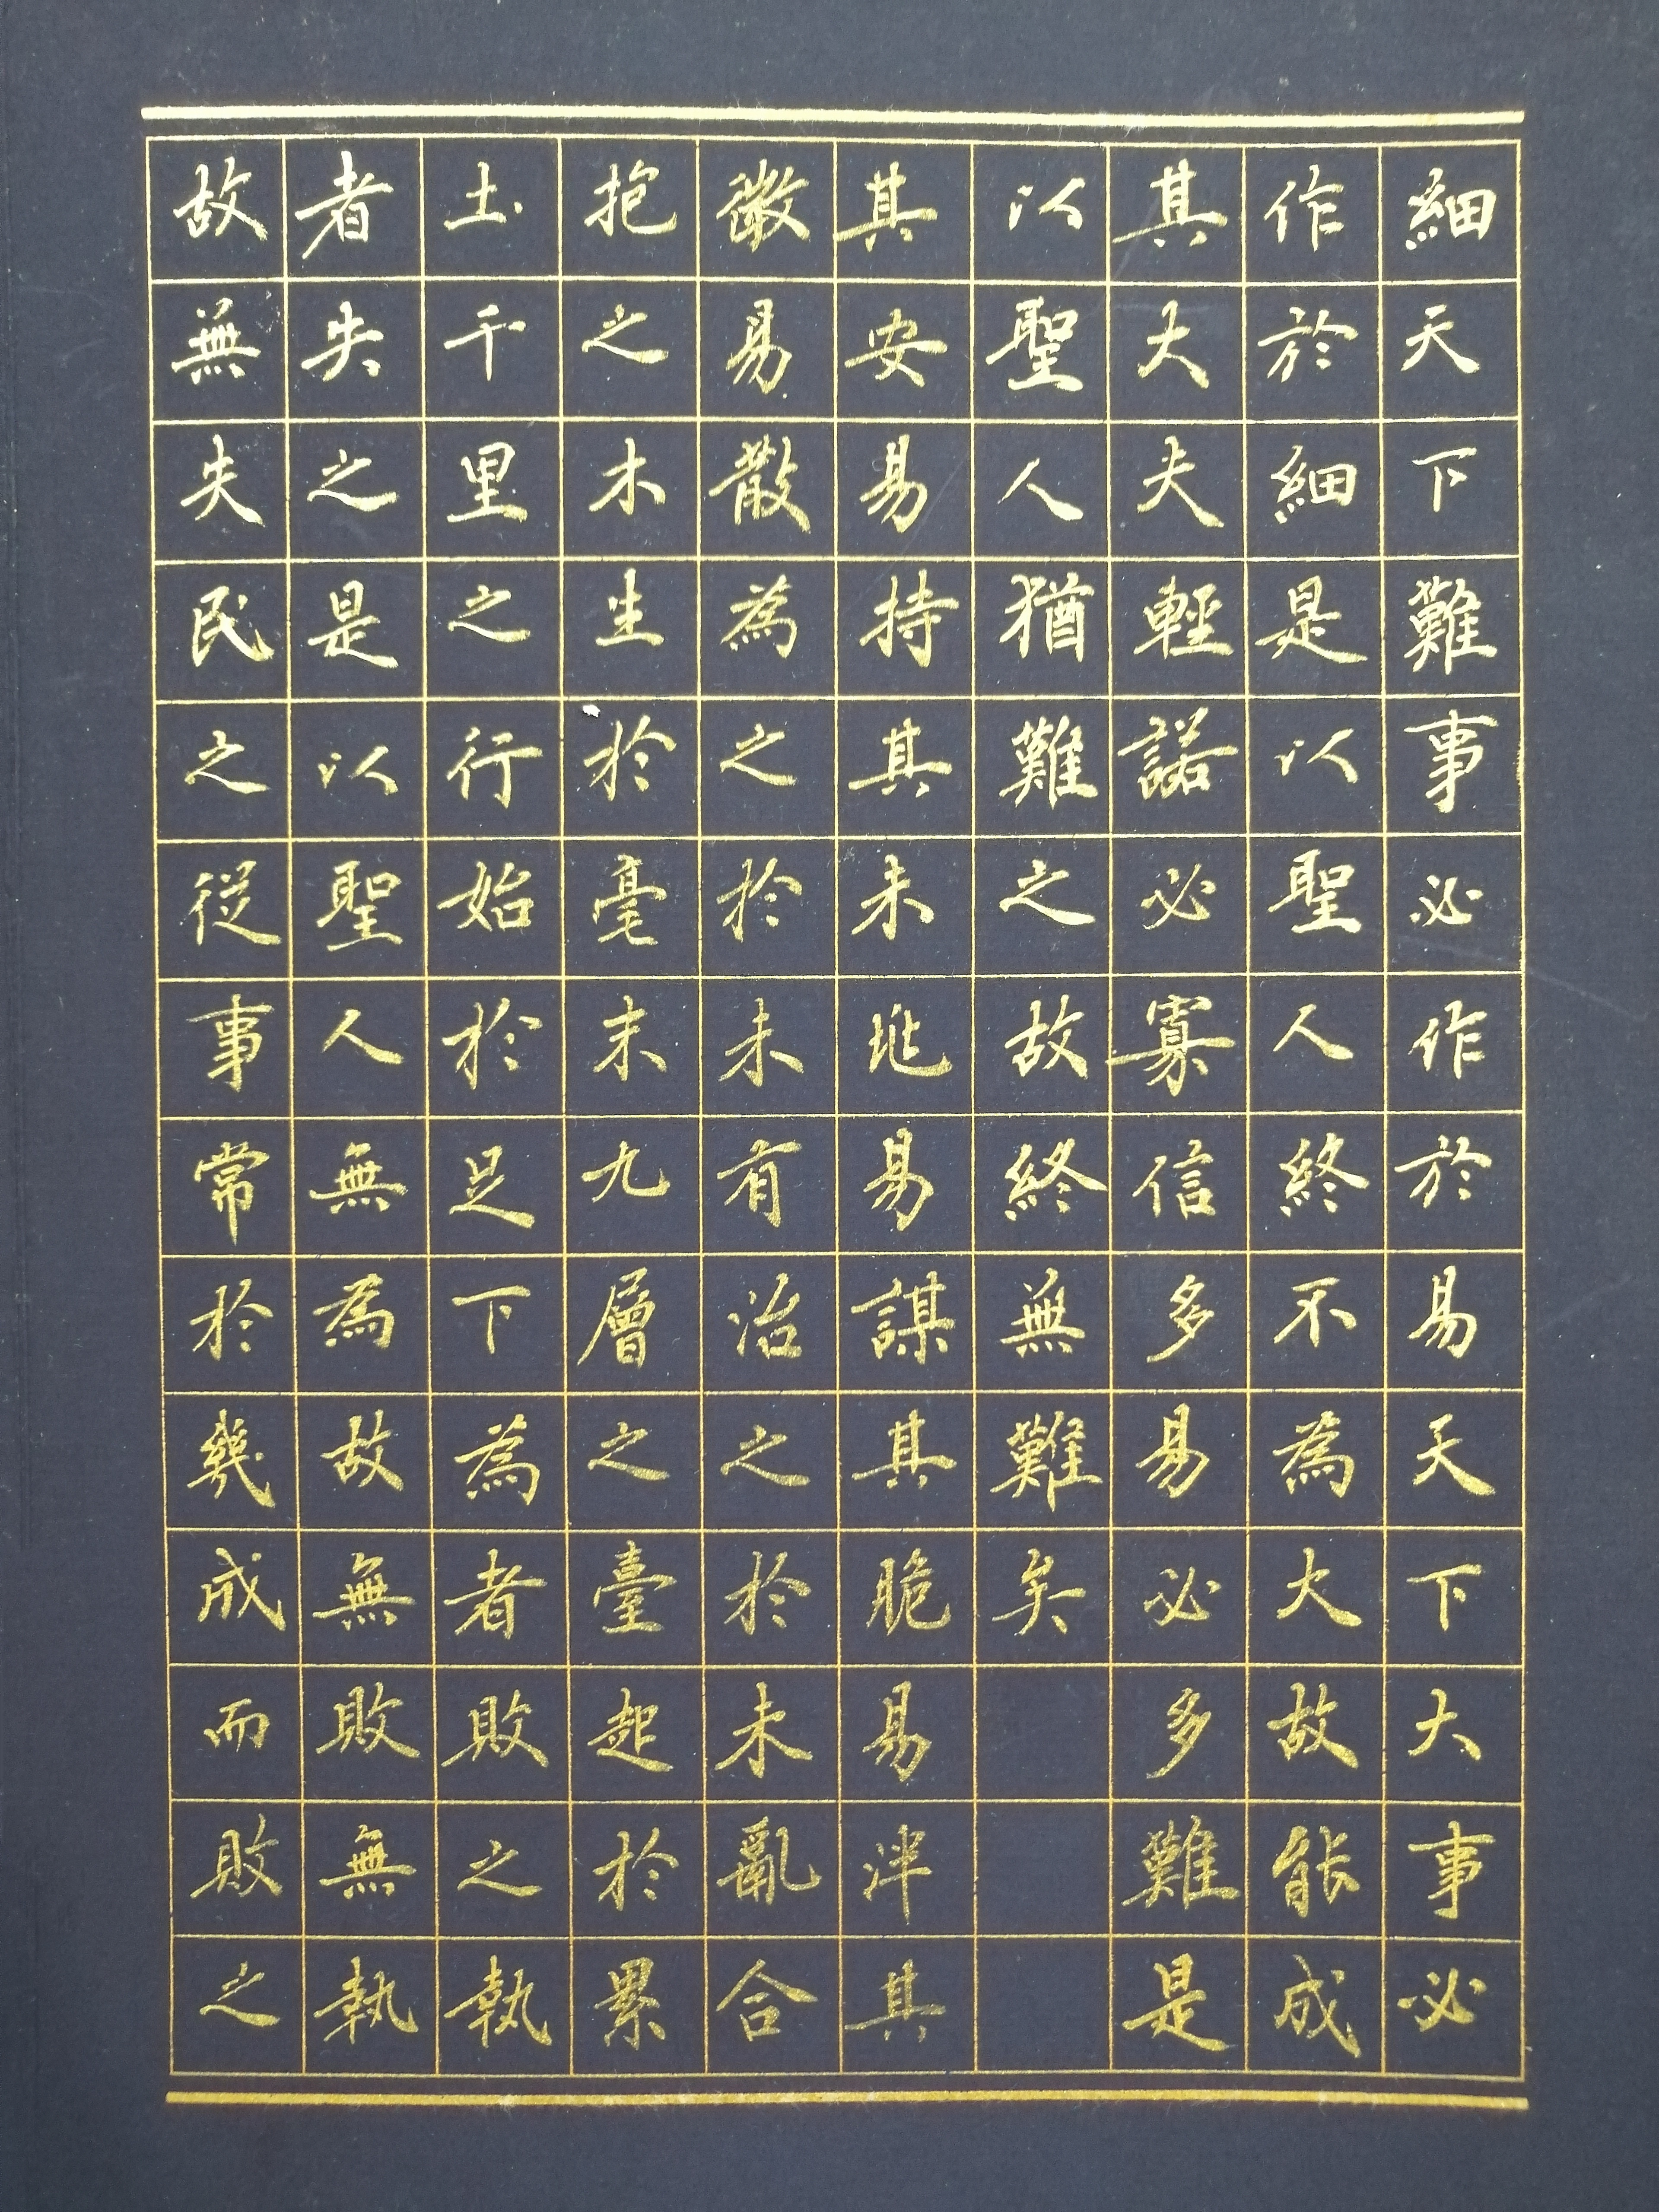 細天下難事必作於易天下大事必
作於細是以聖人終不為大故能成
其大夫輕諾必寡信多易必多難是
以聖人猶難之故終無難矣
其安易持其未兆易謀其脆易泮其
微易散為之於未有治之於未亂合
抱之木生於毫末九層之臺起於累
土千里之行始於足下為者敗之執
者失之是以聖人無為故無敗無執
故無失民之從事常於幾成而敗之